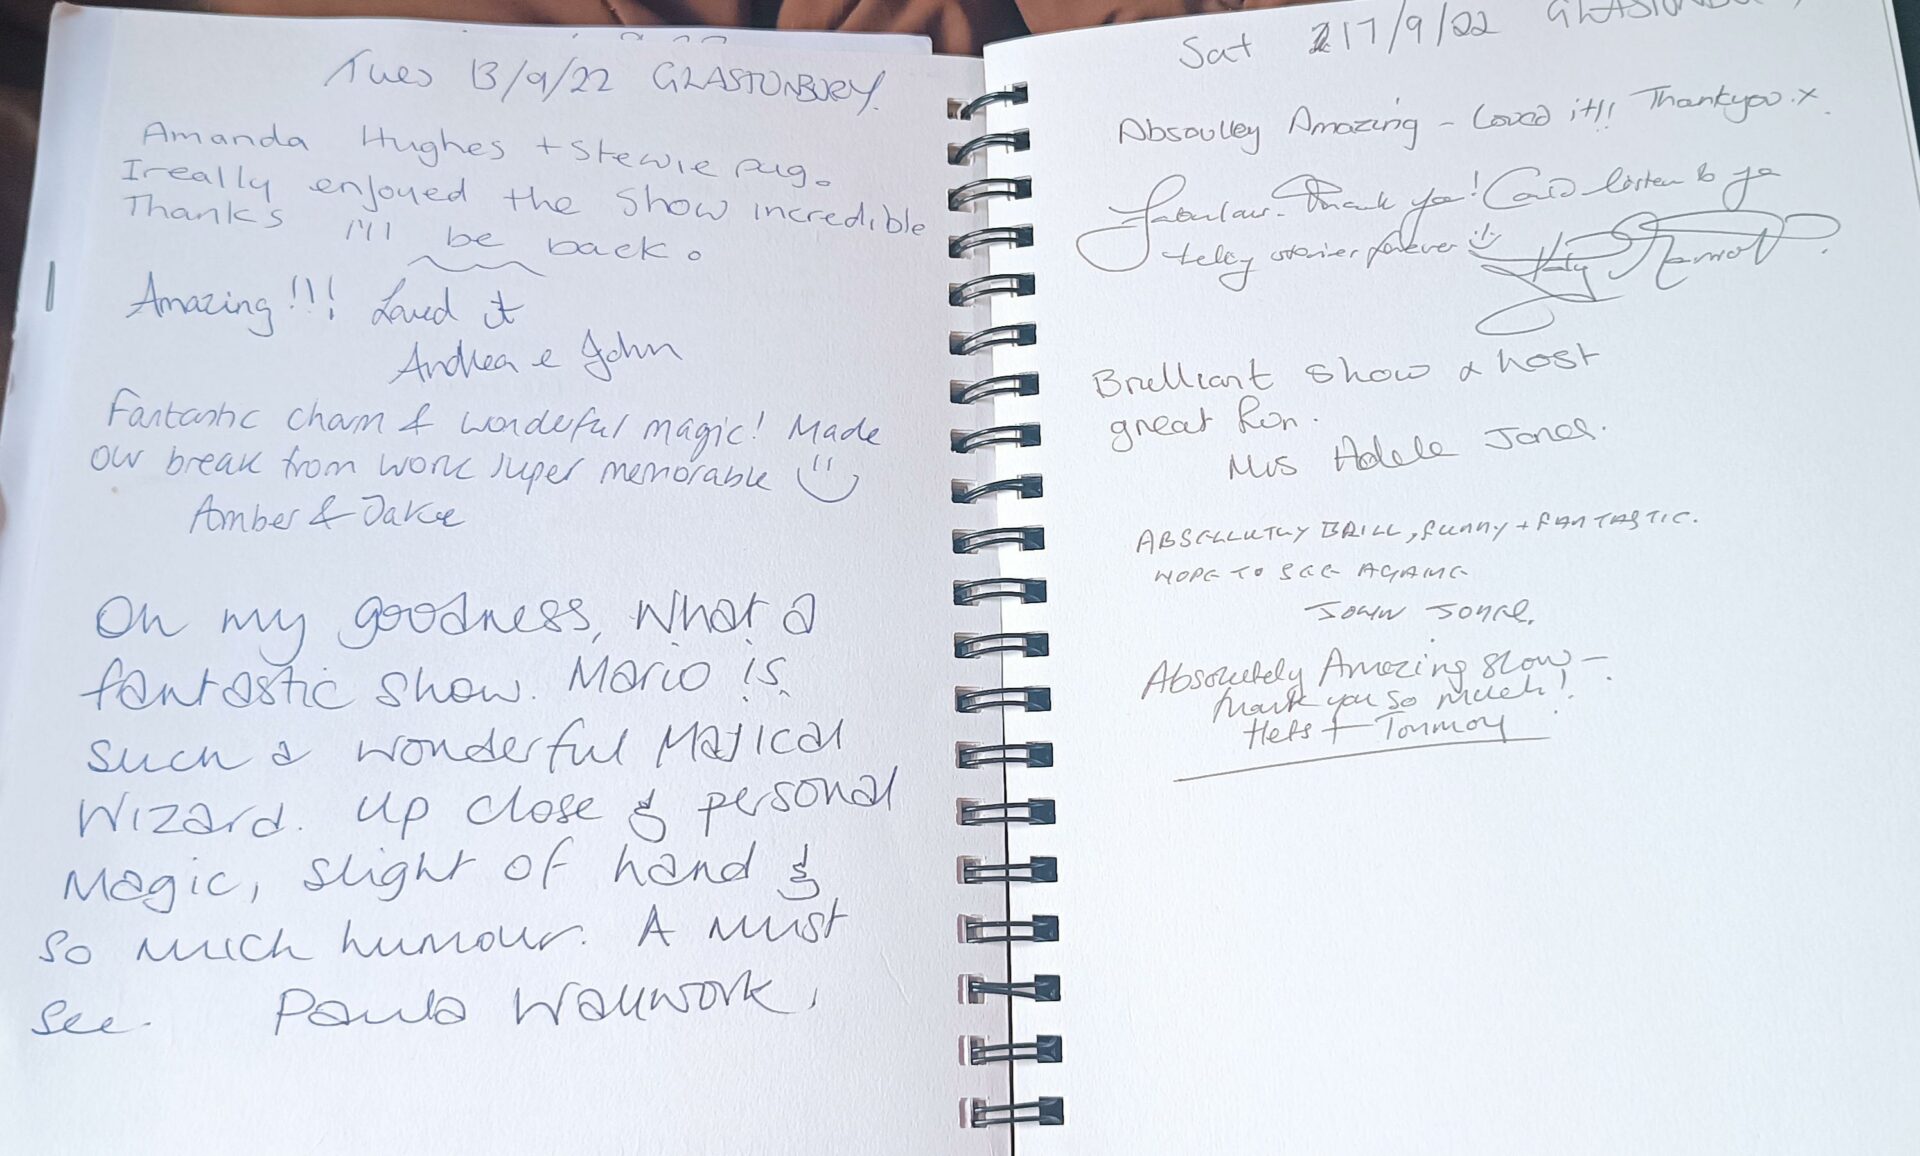 Tues 13/9/22 GLASTONBURY.
Amanda Hughes + Stewie pug.
I really enjoyed the show incredible
Thanks I'll be back.
Amazing!!! Loved it
Andrea e John
Fantastic charm & wonderful magic! Made
our break from work super memorable
Amber & Jake
Oh my goodness, What a
fantastic show. Mario is
such a wonderful Majical
Wizard. Up close & personal
Magic, slight of hand &
so much humour. A must
see. Paula Wallwork.
Sat 17/9/22 GLASTONBURY
Absoulley Amazing - Loved it!! Thankyou.x
Fabulous. Thank you! Could listen to ya
telling stories forever
Brilliant show & host
great fun.
Mrs Adele Jones.
ABSELLUTLY BRILL, funny + FANTASTIC.
HOPE TO SEE AGAME
JOHN JOYCE.
Absolutely Amazing show -
thank you so much!
Hels + Tonmoy